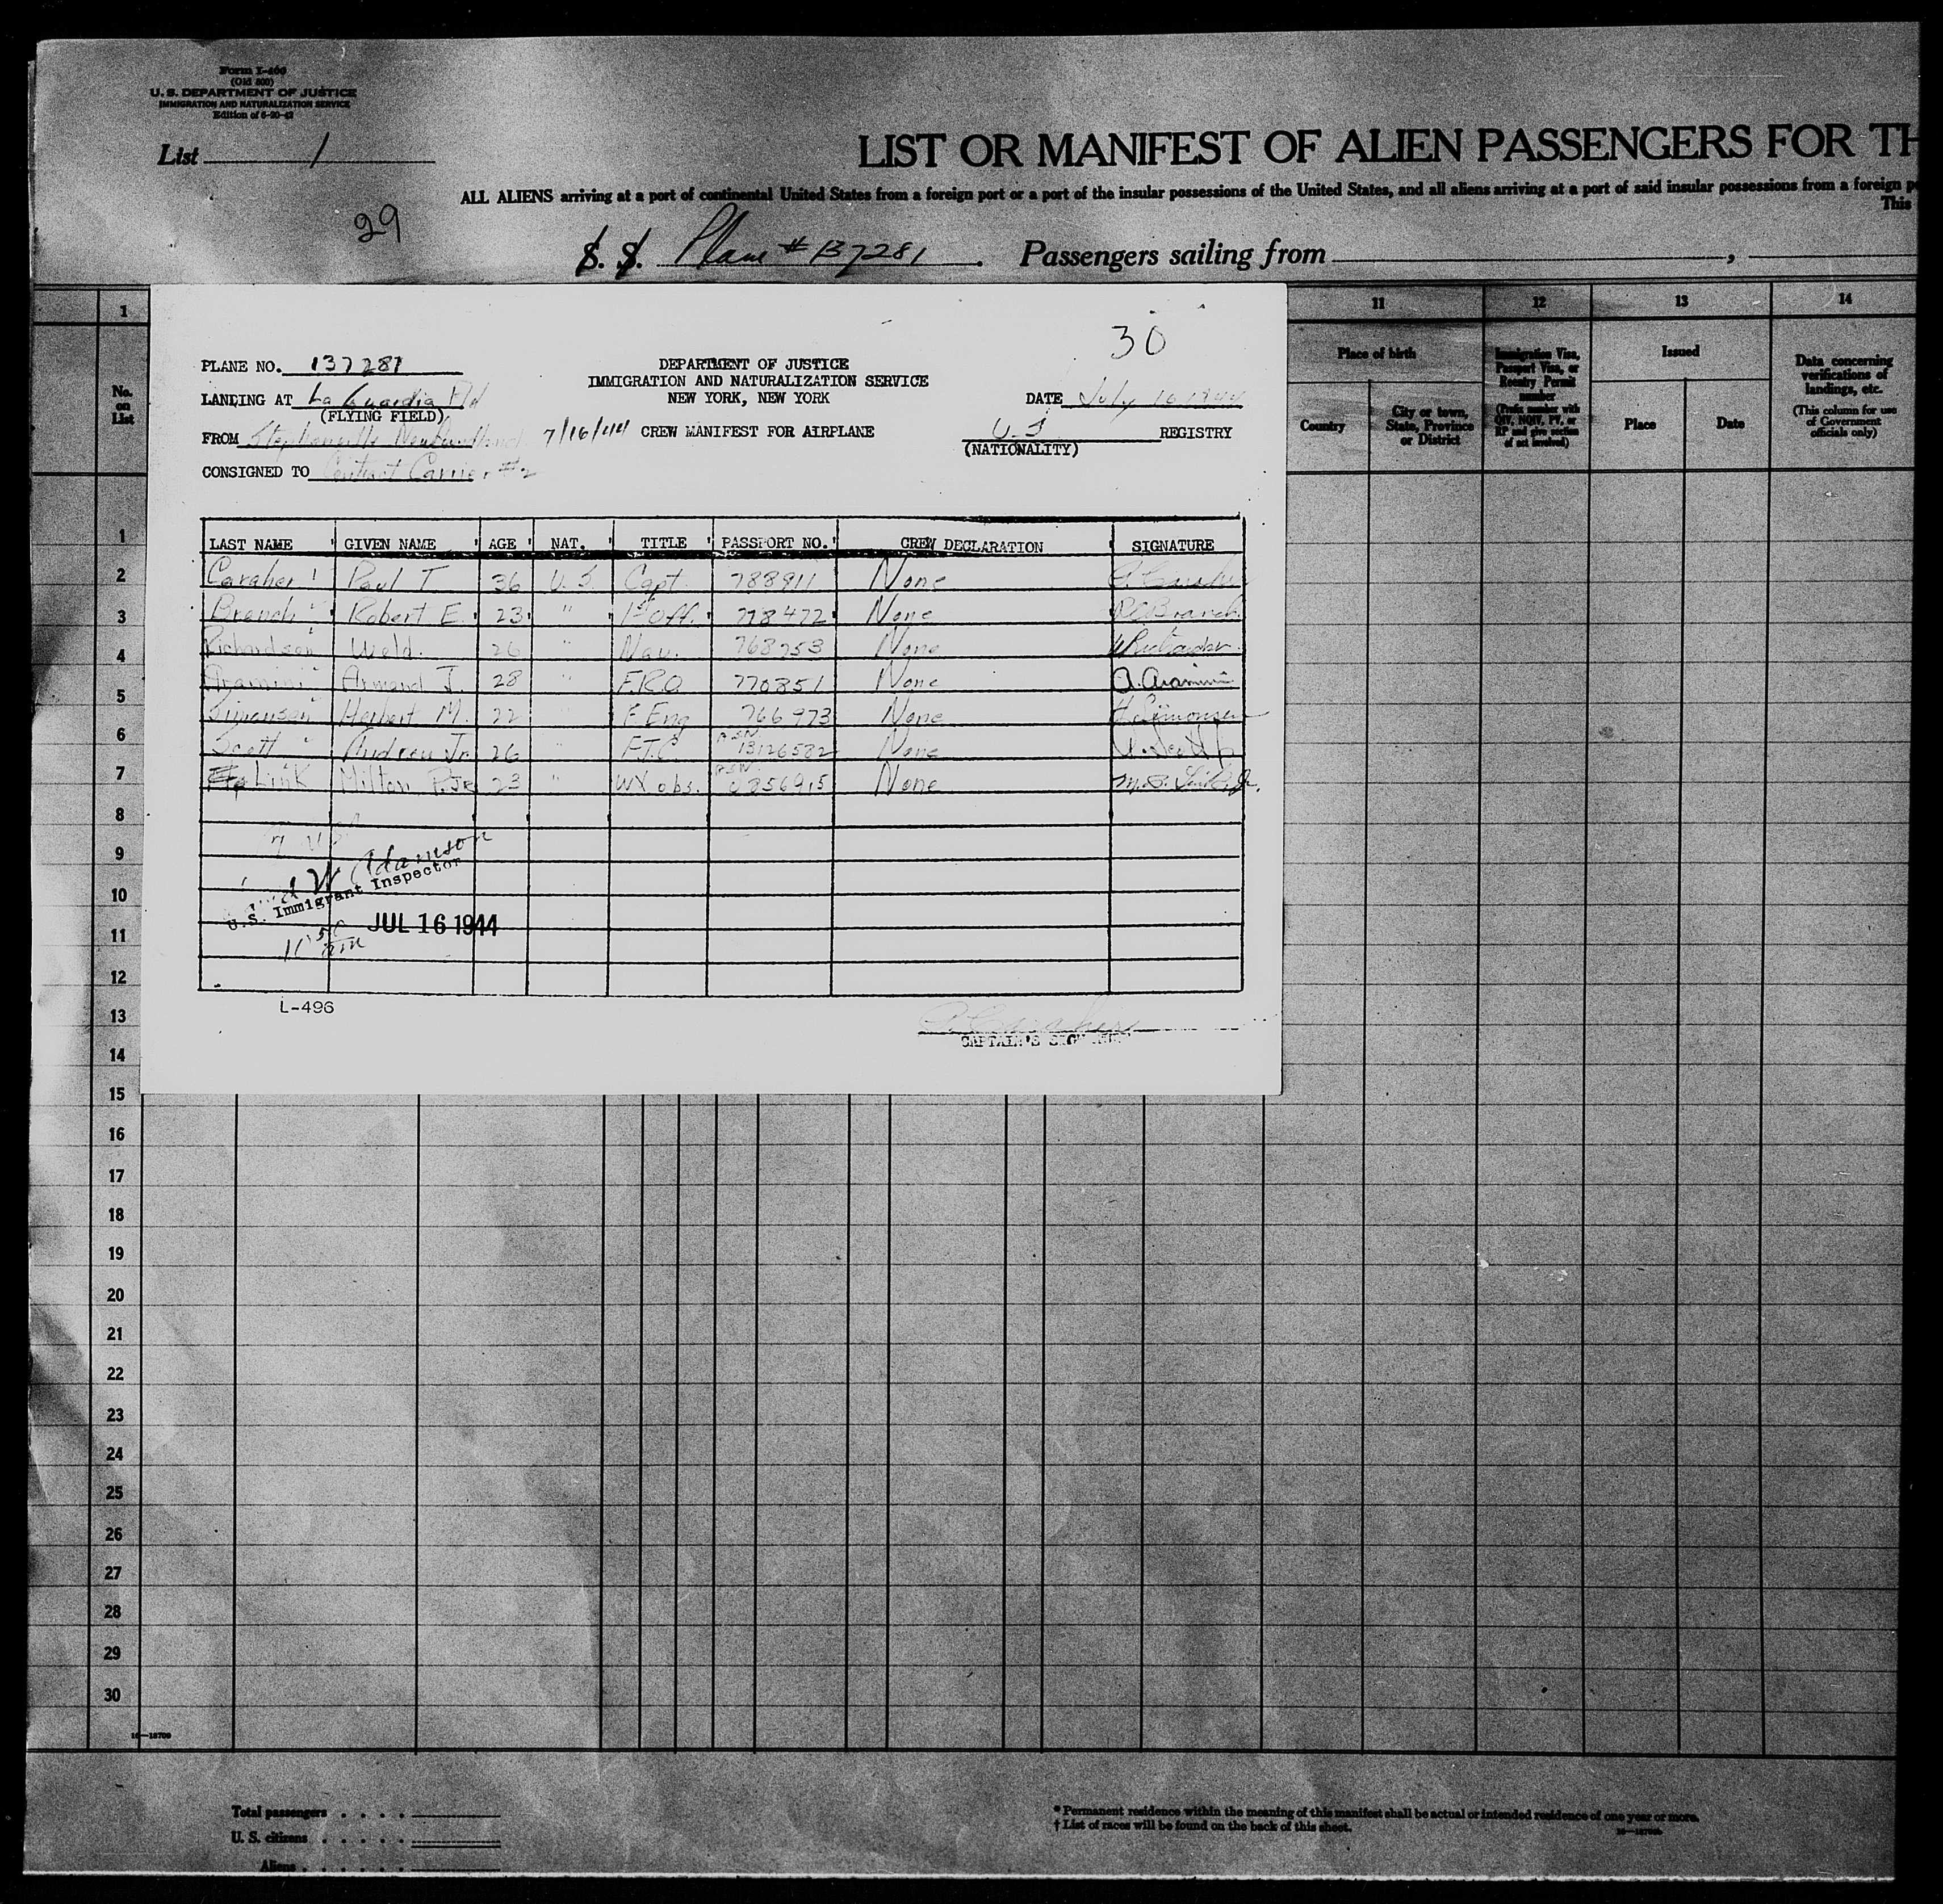 Form I-466
(Old 500)
U. S. DEPARTMENT OF JUSTICE
IMMIGRATION AND NATURALIZATION SERVICE
Edition of
List 1
LIST OR MANIFEST OF ALIEN PASSENGERS FOR TH
ALL ALIENS arriving at a port of continental United States from a foreign port or a port of the insular possessions of the United States, and all aliens arriving at a port of said insular possessions from a foreign p
This
29
S. S. Plane # 137281. Passengers sailing from ,
1 11 12 13 14
No. on List
Place of birth
Country
City or town, State, Province or District
Immigration Visa, Passport Visa, or Reentry Permit number
(Prefix number with QIV, NQIV, PV, or RP and give section of act involved)
Issued
Place Date
Data concerning verifications of landings, etc.
(This column for use of Government officials only)
30
PLANE NO. 137281
DEPARTMENT OF JUSTICE
IMMIGRATION AND NATURALIZATION SERVICE
NEW YORK, NEW YORK
LANDING AT La Guardia Fld
(FLYING FIELD)
DATE July 16 1944
FROM Stephenville Newfoundland 7/16/44 CREW MANIFEST FOR AIRPLANE
U.S REGISTRY
(NATIONALITY)
CONSIGNED TO Contract Carrier #2
LAST NAME GIVEN NAME AGE NAT. TITLE PASSPORT NO. CREW DECLARATION SIGNATURE
Caraher Paul T. 36 U.S. Capt. 788811 None P. Caraher
Branch Robert E. 23 " 1st Off. 778472 None R E Branch
Richardson Weld. 26 " Nav. 768253 None W Richardson
Aramini Armand J. 28 " F.R.O. 770851 None A. Aramini
Simonsen Herbert M. 22 " F. Eng 766973 None H. Simonsen
Scott " Andrew Jr. 26 " F.T.C. ASN 13126582 None A. Scott Jr
Link Milton P. Jr 23 " WX obs. ASN 0856915 None M. P. Link, Jr.
W Adamson
U.S. Immigrant Inspector
JUL 16 1944
11 50 am
L-496
P. Caraher
CAPTAIN'S SIGNATURE
1
2
3
4
5
6
7
8
9
10
11
12
13
14
15
16
17
18
19
20
21
22
23
24
25
26
27
28
29
30
16—18709
Total passengers . . . .
U. S. citizens . . . . . .
Aliens . . . . . . .
* Permanent residence within the meaning of this manifest shall be actual or intended residence of one year or more.
† List of races will be found on the back of this sheet.